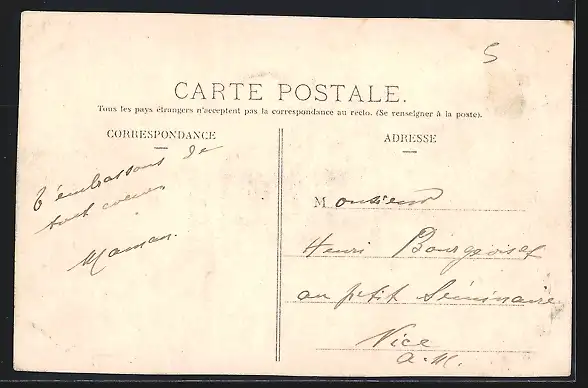 5
CARTE POSTALE.
Tous les pays étrangers n'acceptent pas la correspondance au recto. (Se renseigner à la poste).
CORRESPONDANCE
t'embrassons de
tout coeur
Maman.
ADRESSE
Monsieur
Henri
au petit Séminaire
Nice
A.M.